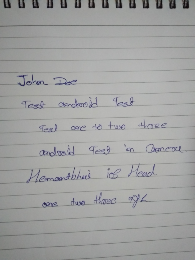 John Doe
Test android Test
Test one to two three
android Test in Camera
Head
one two three xyz